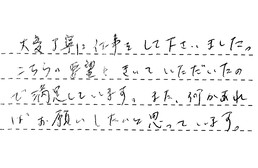 大変丁寧に仕事をして下さいました。
こちらの要望もきいていただいたの
で満足しています。また、何かあれ
ばお願いしたいと思っています。